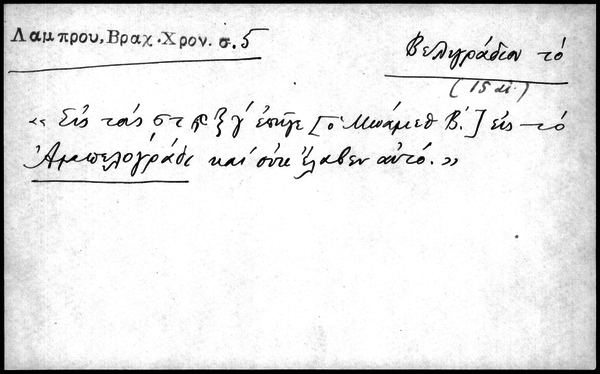 Λαμπρου, Βραχ. Χρον. σ. 5
Βελιγράδιον τό
(15 αἰ.)
« Εἰς τάς ͵ςτϡξγ ἐπῆγε [ὁ Μωάμεθ Β΄.] εἰς τό
Ἀμπελογράδι καί οὐκ ἔλαβεν αὐτό. »